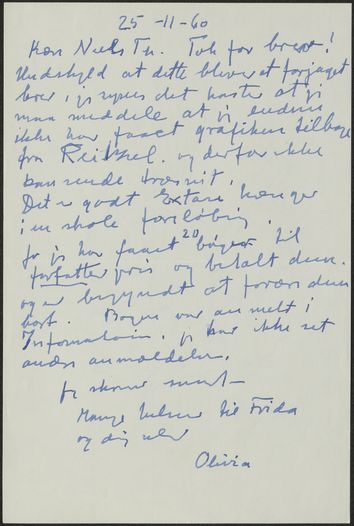 25-11-60
Kære Niels Th. Tak for brev!
Undskyld at dette bliver et forjaget
brev, jeg synes det haster at jeg
maa meddele at jeg endnu
ikke har faaet grafiken tilbage
fra Reitzel. og derfor ikke
kan sende træsnit.
Det er godt Extasen hænger
i en skole foreløbig.
Jo jeg har faaet 20 bøger til
forfatter pris og betalt dem.
og er begyndt at forære dem
bort. Bogen var anmeldt i
Information. jeg har ikke set
andre anmeldelser.
Jeg skriver snart –
Mange hilsner til Frida
og dig selv
Olivia